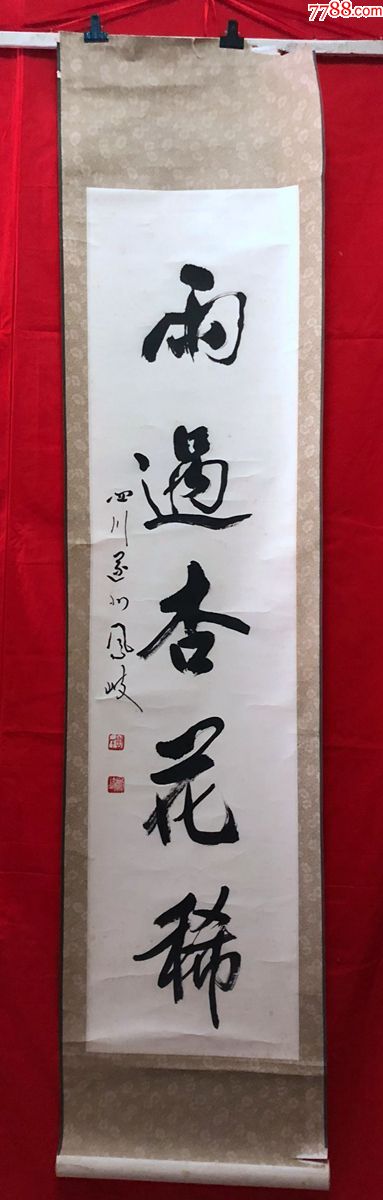 7788.com
雨過杏花稀
四川遂州鳳岐